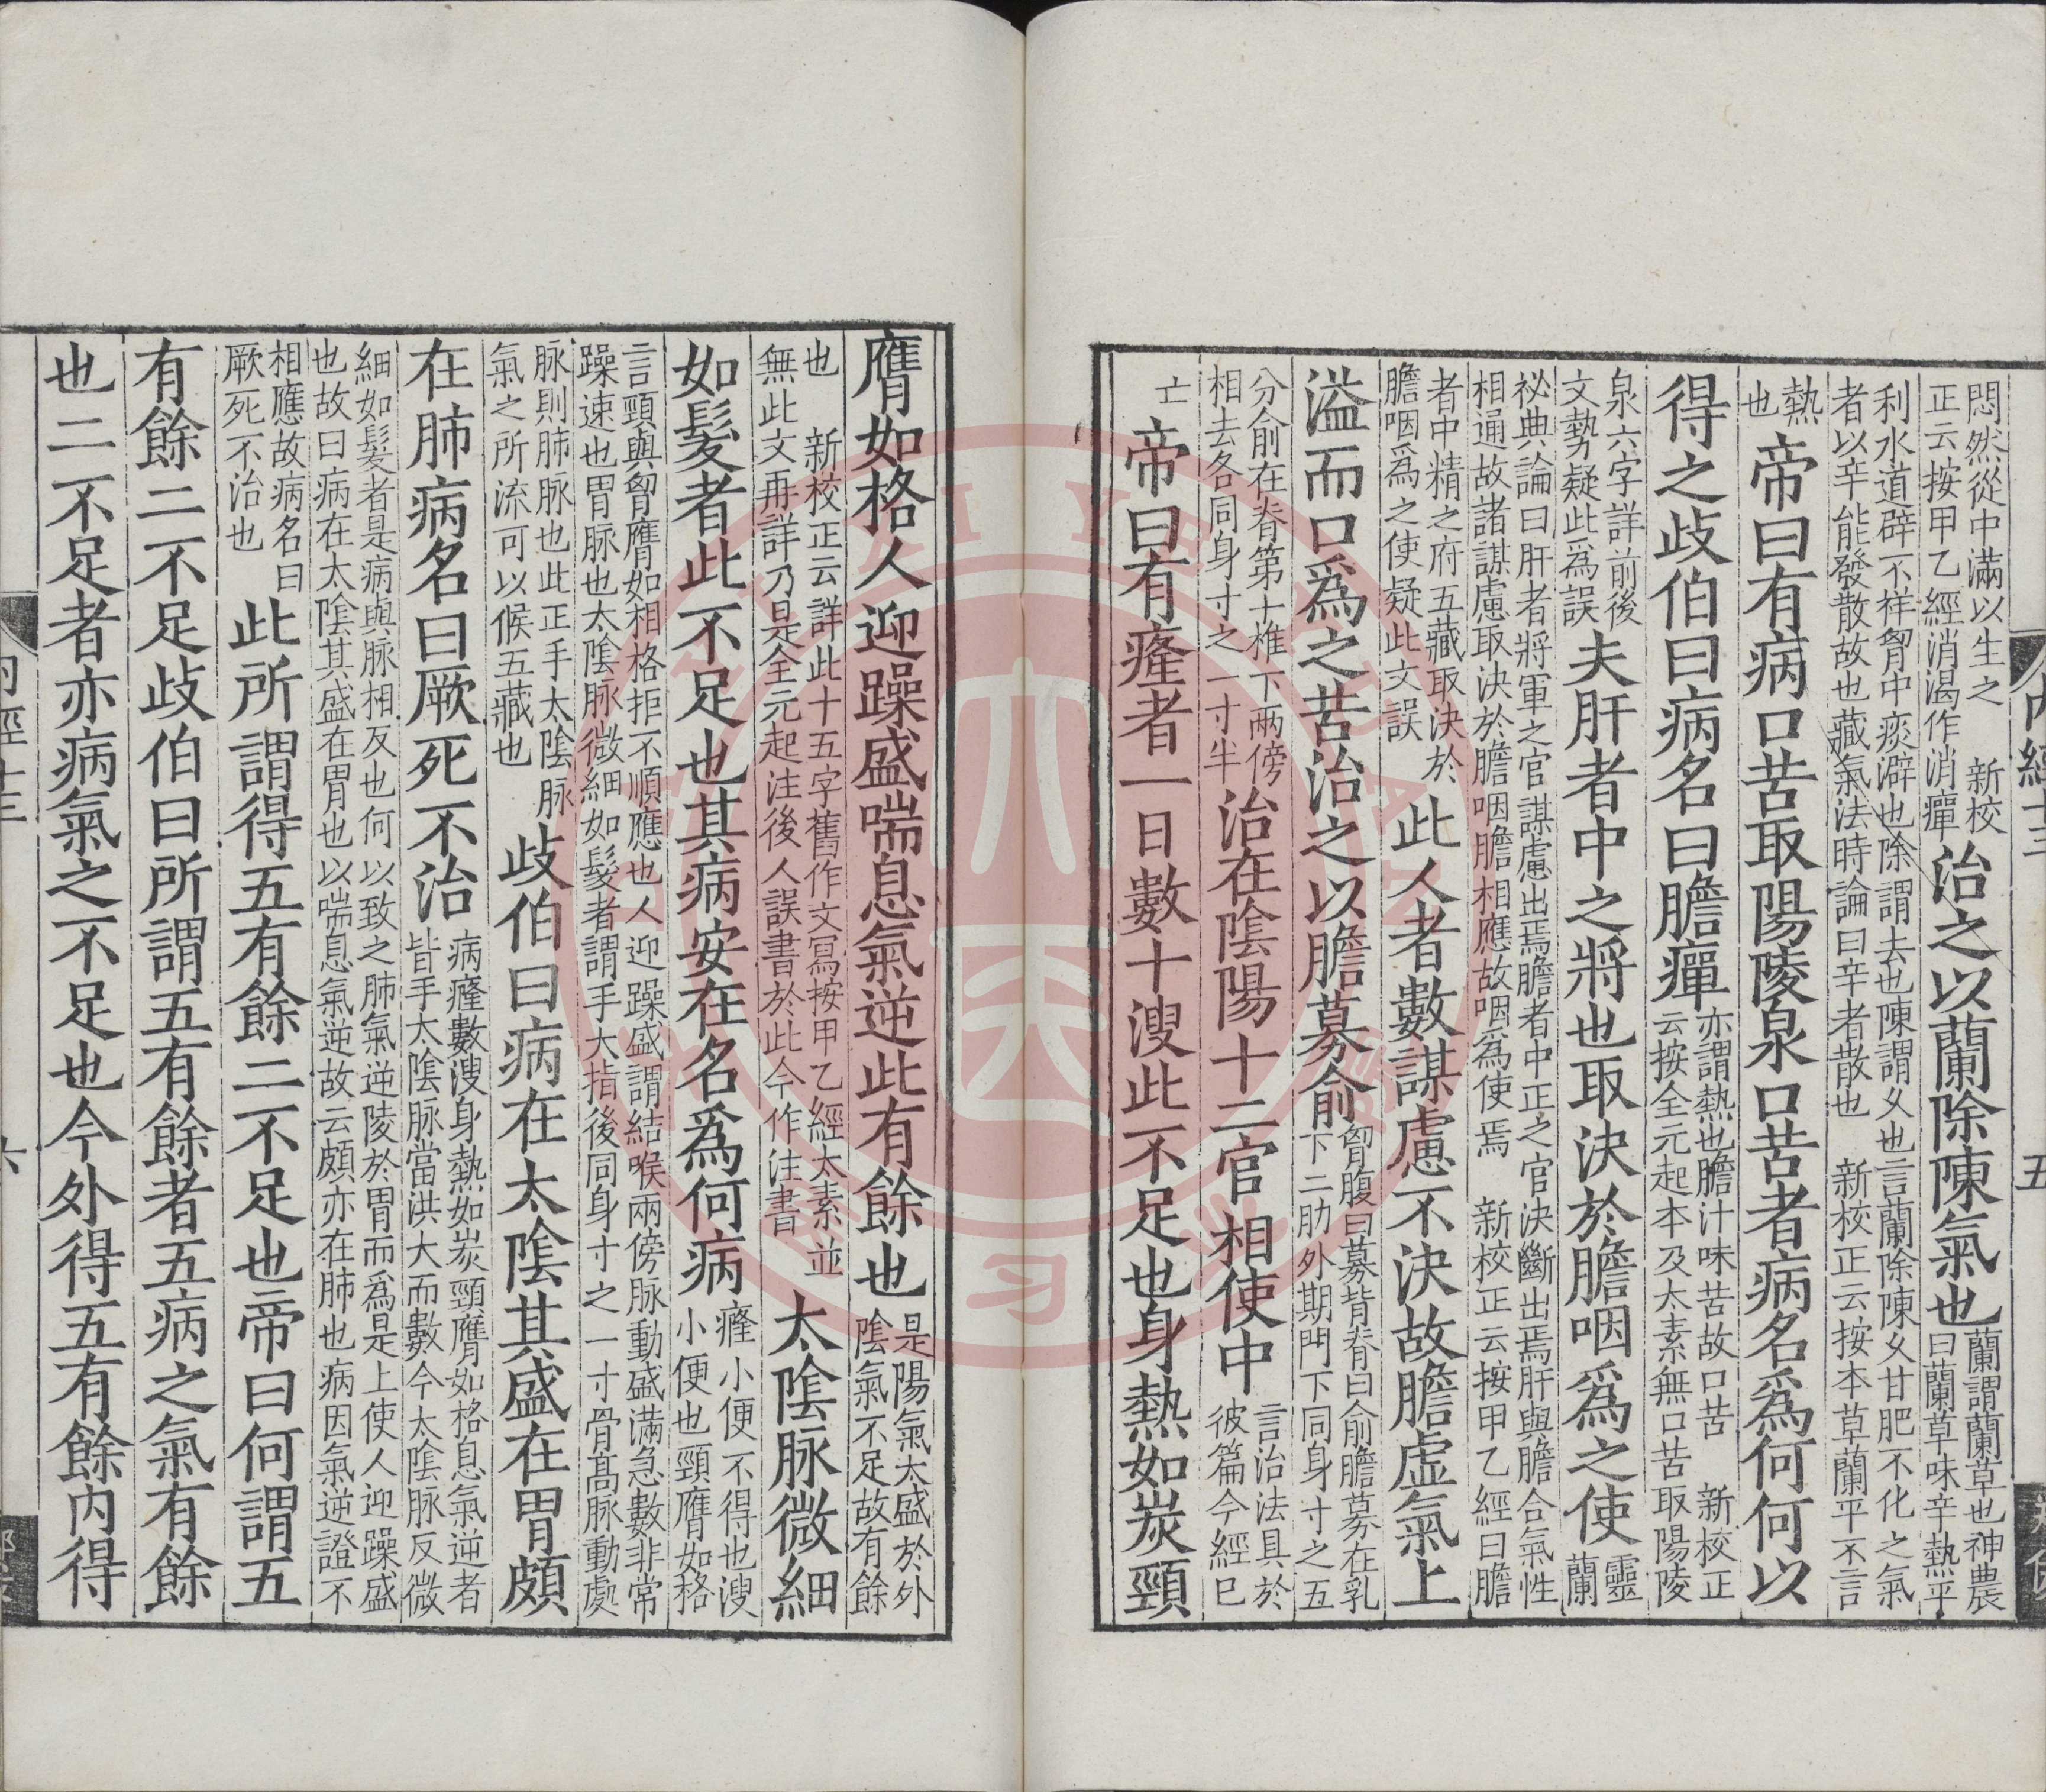 悶然從中滿以生之　新校
正云按甲乙經消渴作消癉
治之以蘭除陳氣也
蘭謂蘭草也神農
曰蘭草味辛熱平
利水道辟不祥胷中痰澼也除謂去也陳謂乆也言蘭除陳乆甘肥不化之氣
者以辛能發散故也藏氣法時論曰辛者散也　新校正云按本草蘭平不言
熱
也
帝曰有病口苦取陽陵泉口苦者病名爲何何以
得之歧伯曰病名曰膽癉
亦謂熱也膽汁味苦故口苦　新校正
云按全元起本及太素無口苦取陽陵
泉六字詳前後
文勢疑此為誤
夫肝者中之將也取決於膽咽爲之使
靈
蘭
祕典論曰肝者將軍之官謀慮出焉膽者中正之官決斷出焉肝與膽合氣性
相通故諸謀慮取決於膽咽膽相應故咽為使焉　新校正云按甲乙經曰膽
者中精之府五藏取決於
膽咽為之使疑此文誤
此人者數謀慮不決故膽虛氣上
溢而口爲之苦治之以膽募俞
胷腹曰募背脊曰俞膽募在乳
下二肋外期門下同身寸之五
分俞在脊第十椎下兩傍
相去各同身寸之一寸半
治在陰陽十二官相使中
言治法具於
彼篇今經已
亡
帝曰有癃者一日數十溲此不足也身熱如炭頸
膺如格人迎躁盛喘息氣逆此有餘也
是陽氣太盛於外
陰氣不足故有餘
也　新校正云詳此十五字舊作文寫按甲乙經太素並
無此文再詳乃是全元起注後人誤書於此今作注書
太陰脉微細
如髮者此不足也其病安在名爲何病
癃小便不得也溲
小便也頸膺如格
言頸與胷膺如相格拒不順應也人迎躁盛謂結喉兩傍脉動盛滿急數非常
躁速也胃脉也太陰脉微細如髮者謂手大指後同身寸之一寸骨高脉動處
脉則肺脉也此正手太陰脉
氣之所流可以候五藏也
歧伯曰病在太陰其盛在胃頗
在肺病名曰厥死不治
病癃數溲身熱如炭頸膺如格息氣逆者
皆手太陰脉當洪大而數今太陰脉反微
細如髮者是病與脉相反也何以致之肺氣逆陵於胃而爲是上使人迎躁盛
也故曰病在太陰其盛在胃也以喘息氣逆故云頗亦在肺也病因氣逆證不
相應故病名曰
厥死不治也
此所謂得五有餘二不足也帝曰何謂五
有餘二不足歧伯曰所謂五有餘者五病之氣有餘
也二不足者亦病氣之不足也今外得五有餘內得
內經十三
五
內經十三
六